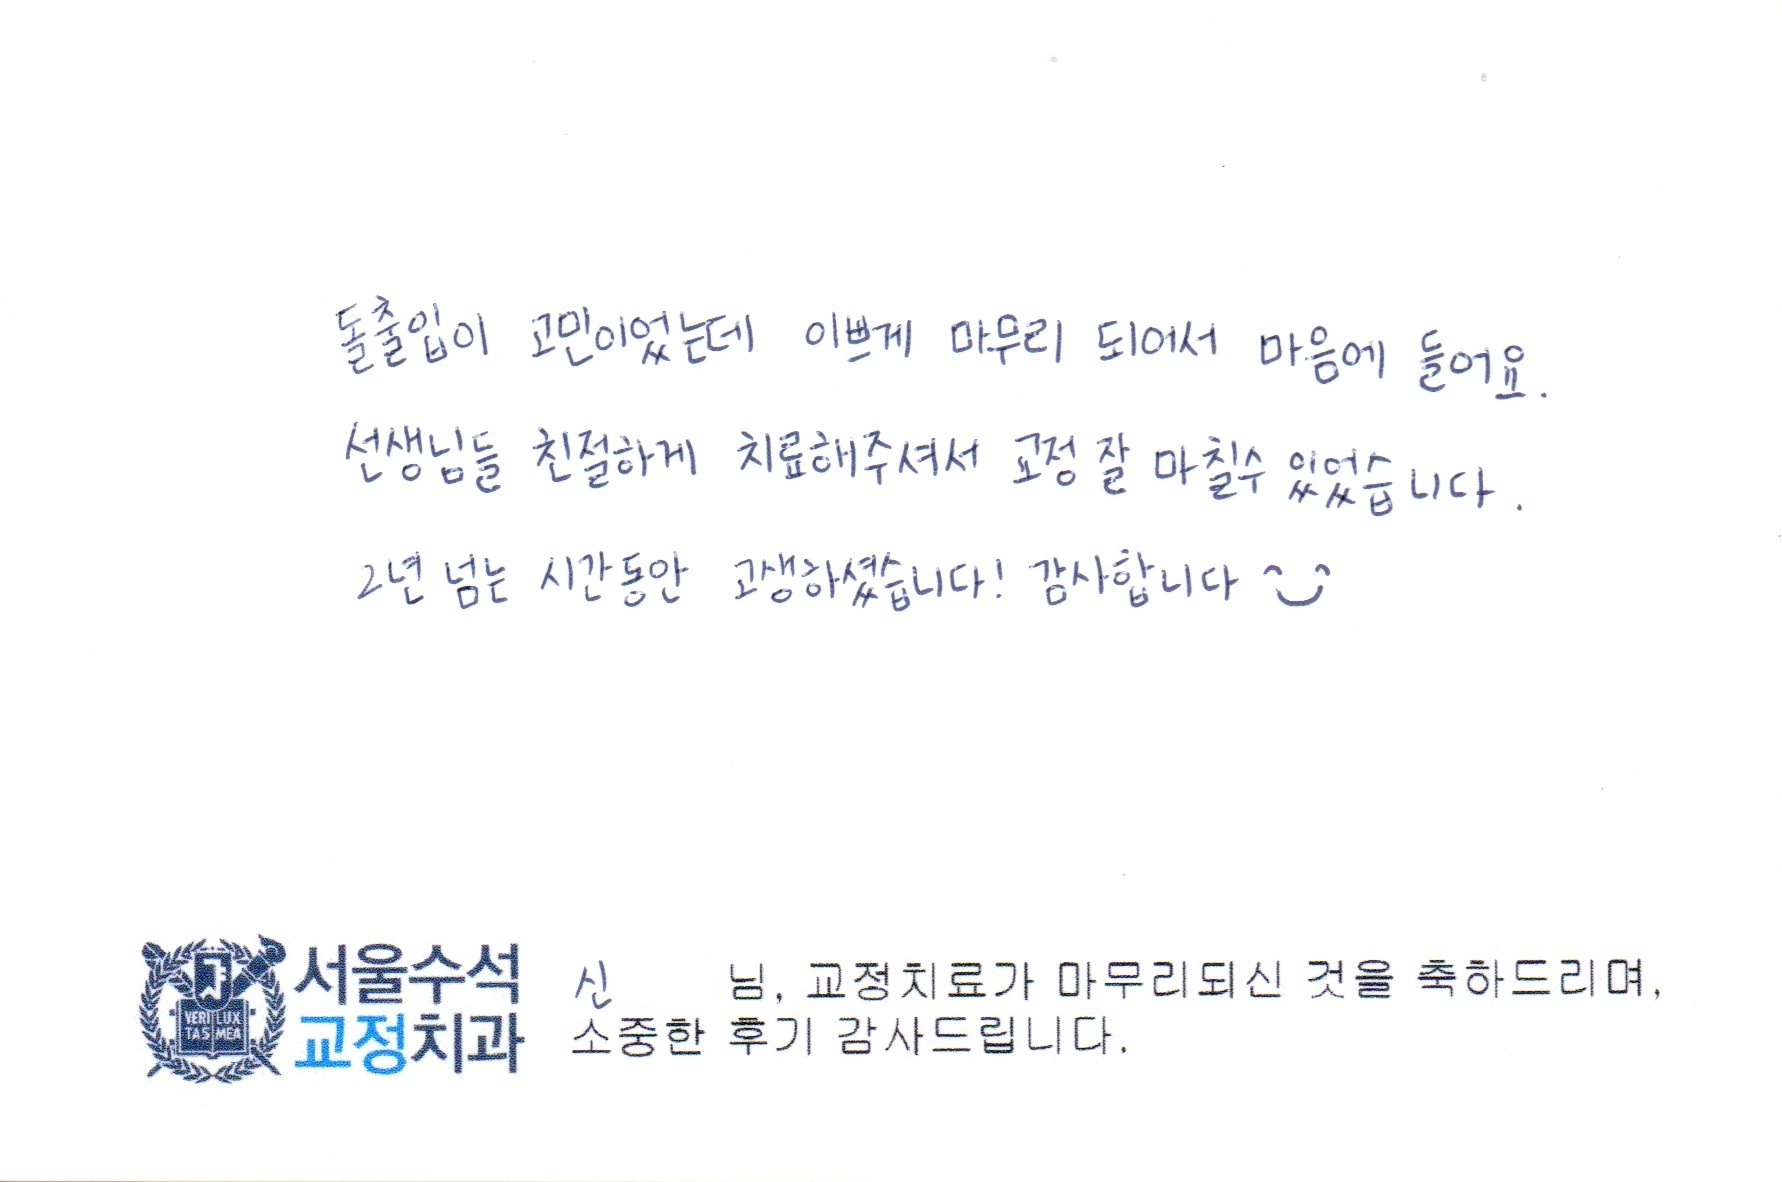 돌출입이 고민이었는데 이쁘게 마무리 되어서 마음에 들어요.
선생님들 친절하게 치료해주셔서 교정 잘 마칠수 있었습니다.
2년 넘는 시간동안 고생하셨습니다! 감사합니다
VERI LUX
TAS MEA
서울수석
교정치과
신 님, 교정치료가 마무리되신 것을 축하드리며,
소중한 후기 감사드립니다.